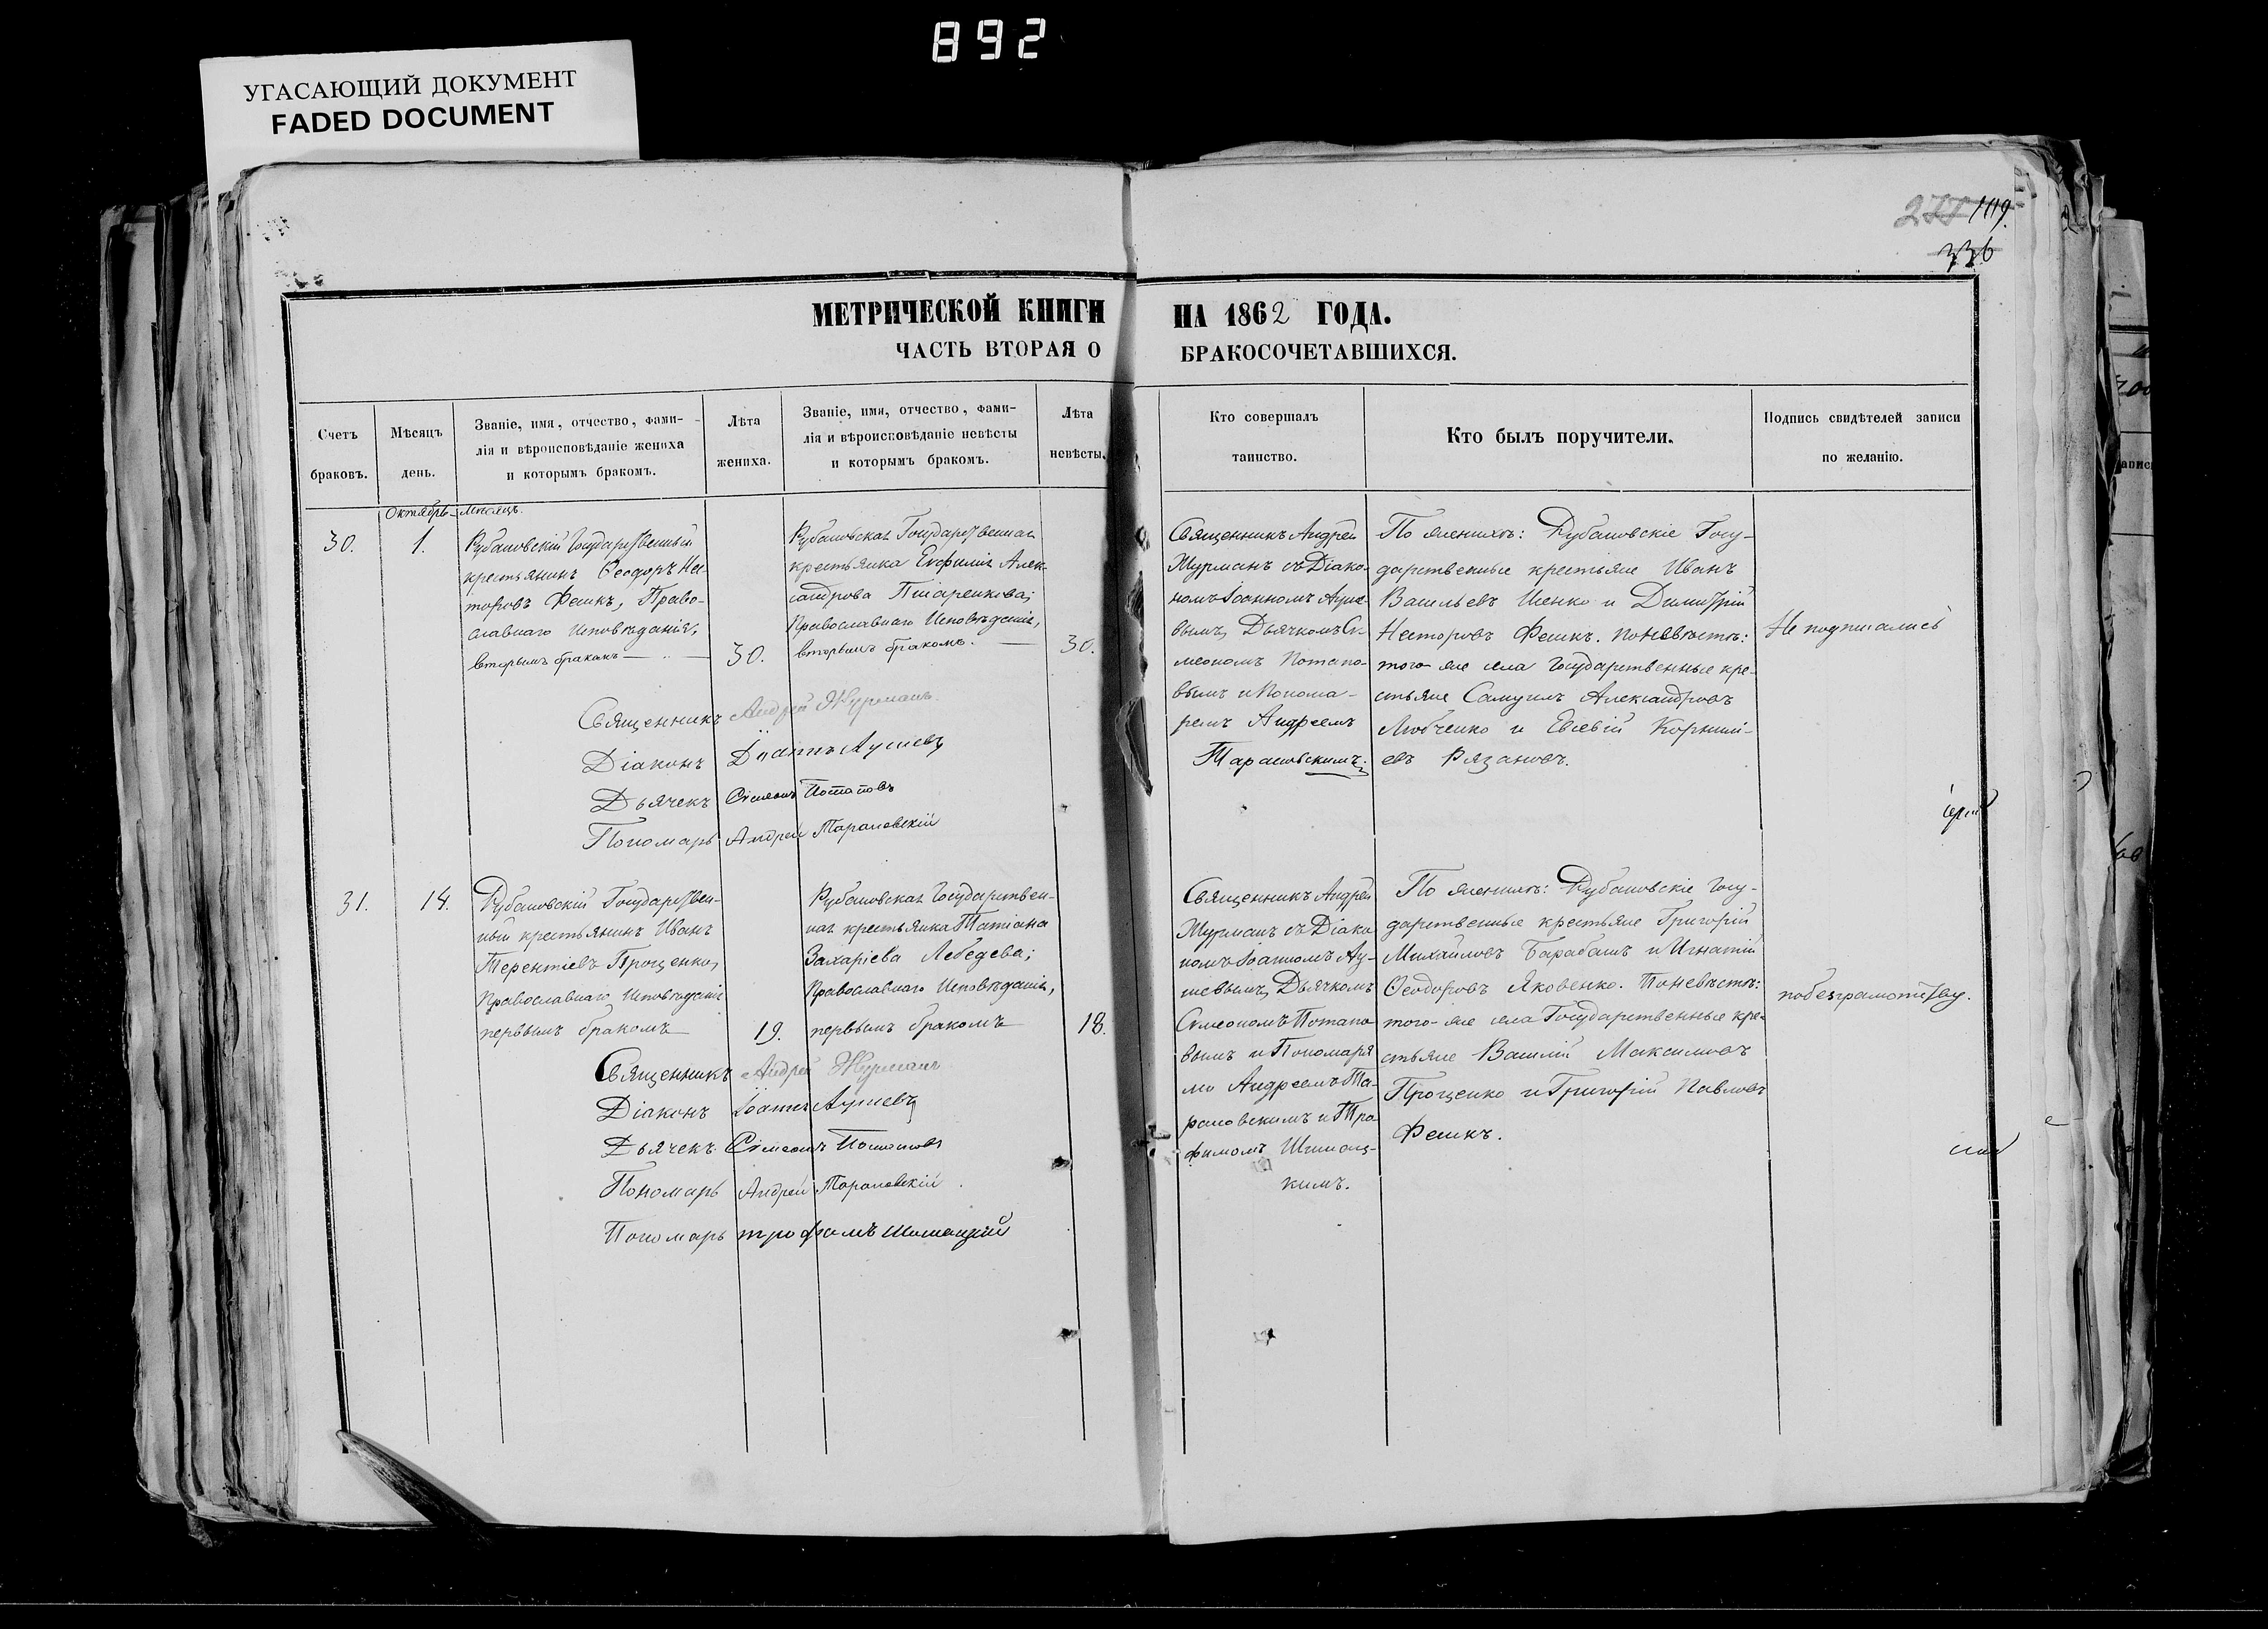 892
УГАСАЮЩИЙ ДОКУМЕНТ
FADED DOCUMENT
119.
336
МЕТРИЧЕСКОЙ КНИГИ НА 1862 ГОДА.
ЧАСТЬ ВТОРАЯ О БРАКОСОЧЕТАВШИХСЯ.
Счетъ
браковъ.
Мѣсяцъ
день.
Званіе, имя, отчество, фами-
лія и вѣроисповѣданіе жениха
и которымъ бракомъ.
Лѣта
жениха.
Званіе, имя, отчество, фами-
лія и вѣроисповѣданіе невѣсты
и которымъ бракомъ.
Лѣта
невѣсты.
Кто совершалъ
таинство.
Кто былъ поручители.
Подпись свидѣтелей записи
по желанію.
Октябрь-мѣсяцъ.
30.
1.
Рубановскій Государственный
крестьянинъ Ѳеодоръ Нес-
торовъ Фешкъ, Право-
славнаго Исповѣданія,
вторымъ бракомъ
30.
Рубановская Государственная
крестьянка Евфимія Алек-
сандрова Писаренкова;
Православнаго Исповѣданія,
вторымъ бракомъ.
30.
Священникъ Андрей
Журманъ съ Діако-
номъ Іоанномъ
вымъ, Дьячкомъ Си-
меономъ Потапо-
вымъ и Понома-
ремъ Андреемъ
Тарановскимъ.
По женихѣ: Рубановскіе Госу-
дарственные крестьяне Иванъ
Васильевъ Шенко и Димитрій
Несторовъ Фешкъ. По невѣстѣ:
того-же села Государственные кре-
стьяне Самуилъ Александровъ
Любченко и Евсевій Корній-
евъ Рязановъ.
Не подписались
Священникъ Андрей Журманъ
Діаконъ Іоаннъ
Дьячекъ Сімеонъ Потаповъ
Пономарь Андрей Тарановскій
31.
14.
Рубановскій Государствен-
ный крестьянинъ Иванъ
Терентіевъ Проценко,
Православнаго Исповѣданія
первымъ бракомъ
19.
Рубановская Государствен-
ная крестьянка Татіана
Захаріева Лебедева;
Православнаго Исповѣданія,
первымъ бракомъ
18.
Священникъ Андрей
Журманъ съ Діако
номъ Іоанномъ
Дьячкомъ
Симеономъ Потапо
вымъ и Пономаря
ми Андреемъ Та-
рановскимъ и Тро
фимомъ Шимонц-
кимъ.
По женихѣ: Рубановскіе Госу-
дарственные крестьяне Григорій
Михайловъ Барабашъ и Игнатій
Ѳеодоровъ Яковенко. По невѣстѣ:
того-же села Государственные кре-
стьяне Василій Максимовъ
Проценко и Григорій Павловъ
Фешкъ.
по безграмотству.
Священникъ Андрей Журманъ
Діаконъ Іоаннъ
Дьячекъ Сімеонъ Потаповъ
Пономарь Андрей Тарановскій
Пономарь Трофимъ